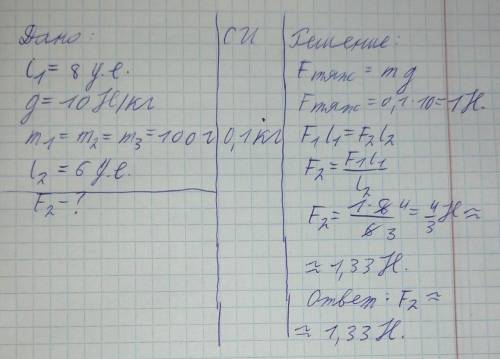 Дано:
l₁ = 8 у.е.
g = 10 Н/кг
m₁ = m₂ = m₃ = 100 г
l₂ = 6 у.е.
F₂ - ?
СИ
0,1 кг
Решение:
Fтяж = mg
Fтяж = 0,1·10 = 1Н.
F₁l₁ = F₂l₂
F₂ = F₁l₁/l₂
F₂ = 1·8 4/6 3 = 4/3 Н ≈
≈ 1,33 Н.
Ответ: F₂ ≈
≈ 1,33 Н.